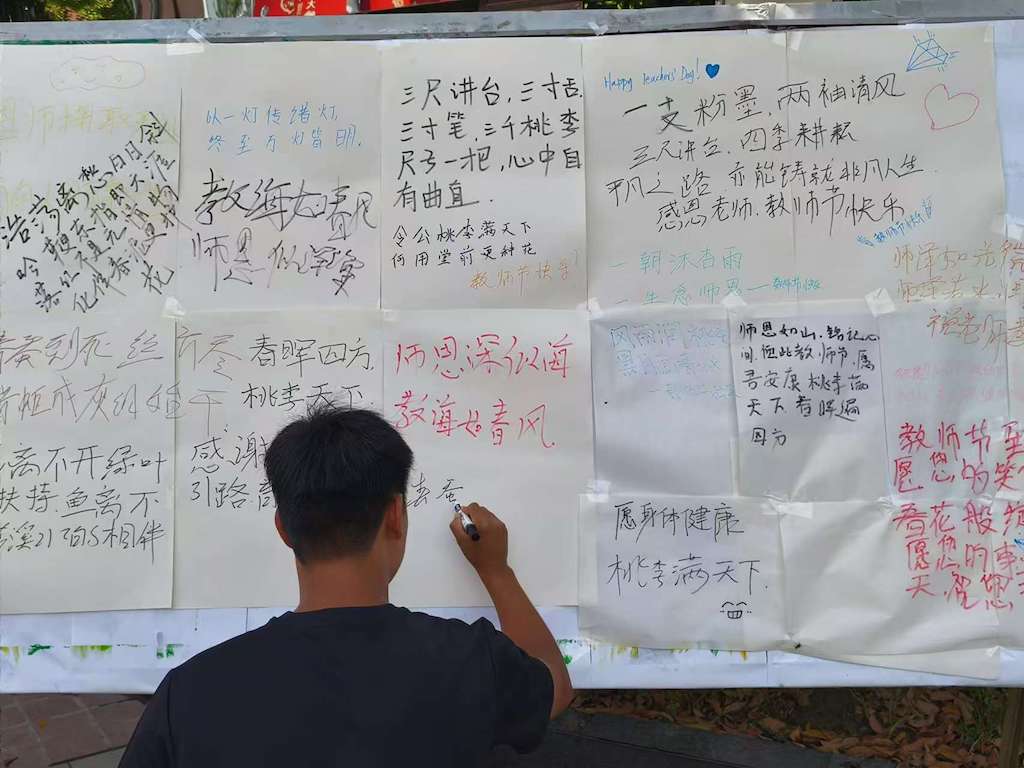 以一灯传诸灯,
终至万灯皆明.
教诲如春风
师恩似深海
三尺讲台,三寸舌
三寸笔,三千桃李
尺子一把,心中自
有曲直.
令公桃李满天下
何用堂前更种花
教师节快乐
Happy Teachers' Day!
一支粉墨,两袖清风
三尺讲台,四季耕耘
平凡之路,亦能铸就非凡人生.
感恩老师,教师节快乐.
教师节快乐
一朝沐杏雨
一生念师恩
浩荡离愁白日
吟鞭东指即天涯
落红不是无情物
化作春泥更护
花
春蚕到死丝方尽
成灰
干
春晖四方,
桃李天下.
感谢
引路
离不开绿叶
扶持,鱼离不
相伴
师恩深似海
教海如春风.
春蚕
师恩如山,铭记心
间,值此教师节,愿
吾安康,桃李满
天下,春晖遍
因为
愿身体健康
桃李满天下.
教师节至
愿您的笑
春花般
愿您的事
天,祝您